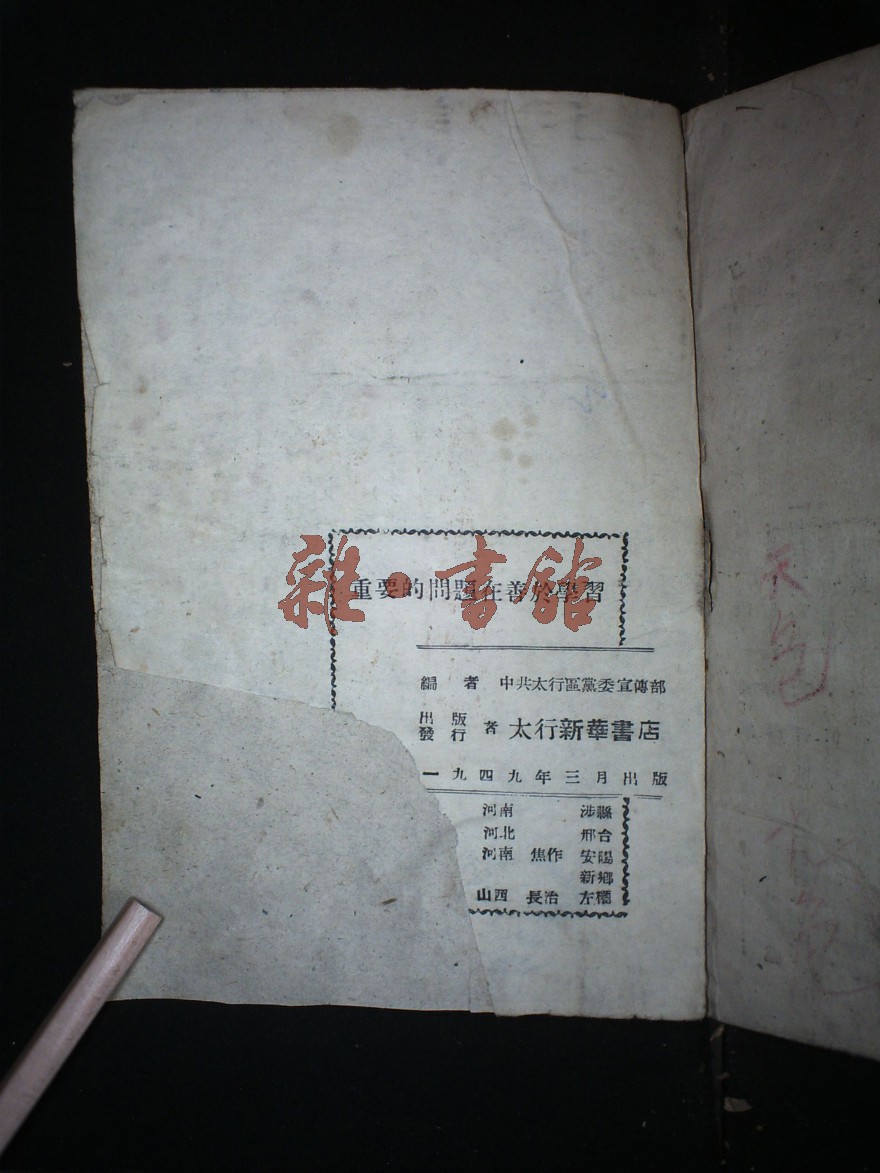 重要的問題在善於學習
雜·書館
編者 中共太行區黨委宣傳部
出版
發行
者 太行新華書店
一九四九年三月出版
河南 涉縣
河北 邢台
河南 焦作 安陽
新鄉
山西 長治 左權
天